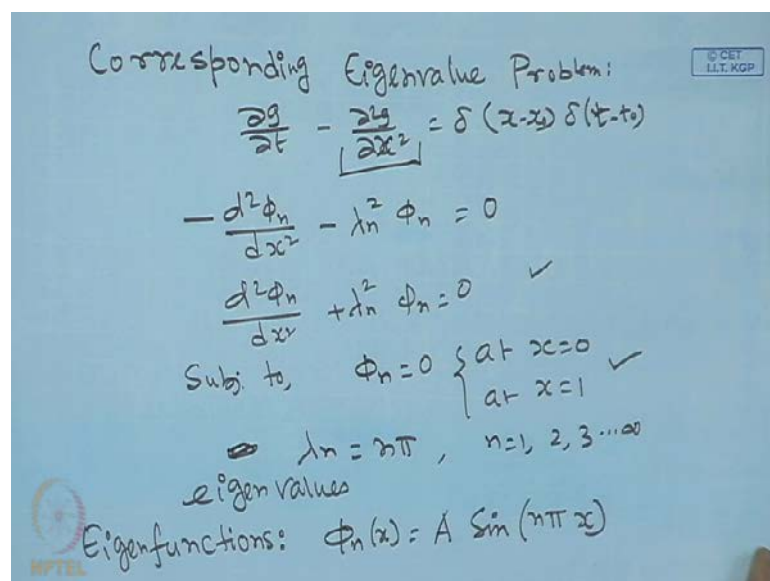 Corresponding Eigenvalue Problem:
© CET
I.I.T. KGP
∂g/∂t - ∂²g/∂x² = δ(x-x₀) δ(t-t₀)
- d²Φₙ/dx² - λₙ² Φₙ = 0
d²Φₙ/dx² + λₙ² Φₙ = 0 ✓
Subj. to, Φₙ = 0 { at x=0
at x=1 ✓
λₙ = nπ, n=1, 2, 3 ...∞
eigenvalues
Eigenfunctions: Φₙ(x) = A Sin(nπx)
NPTEL